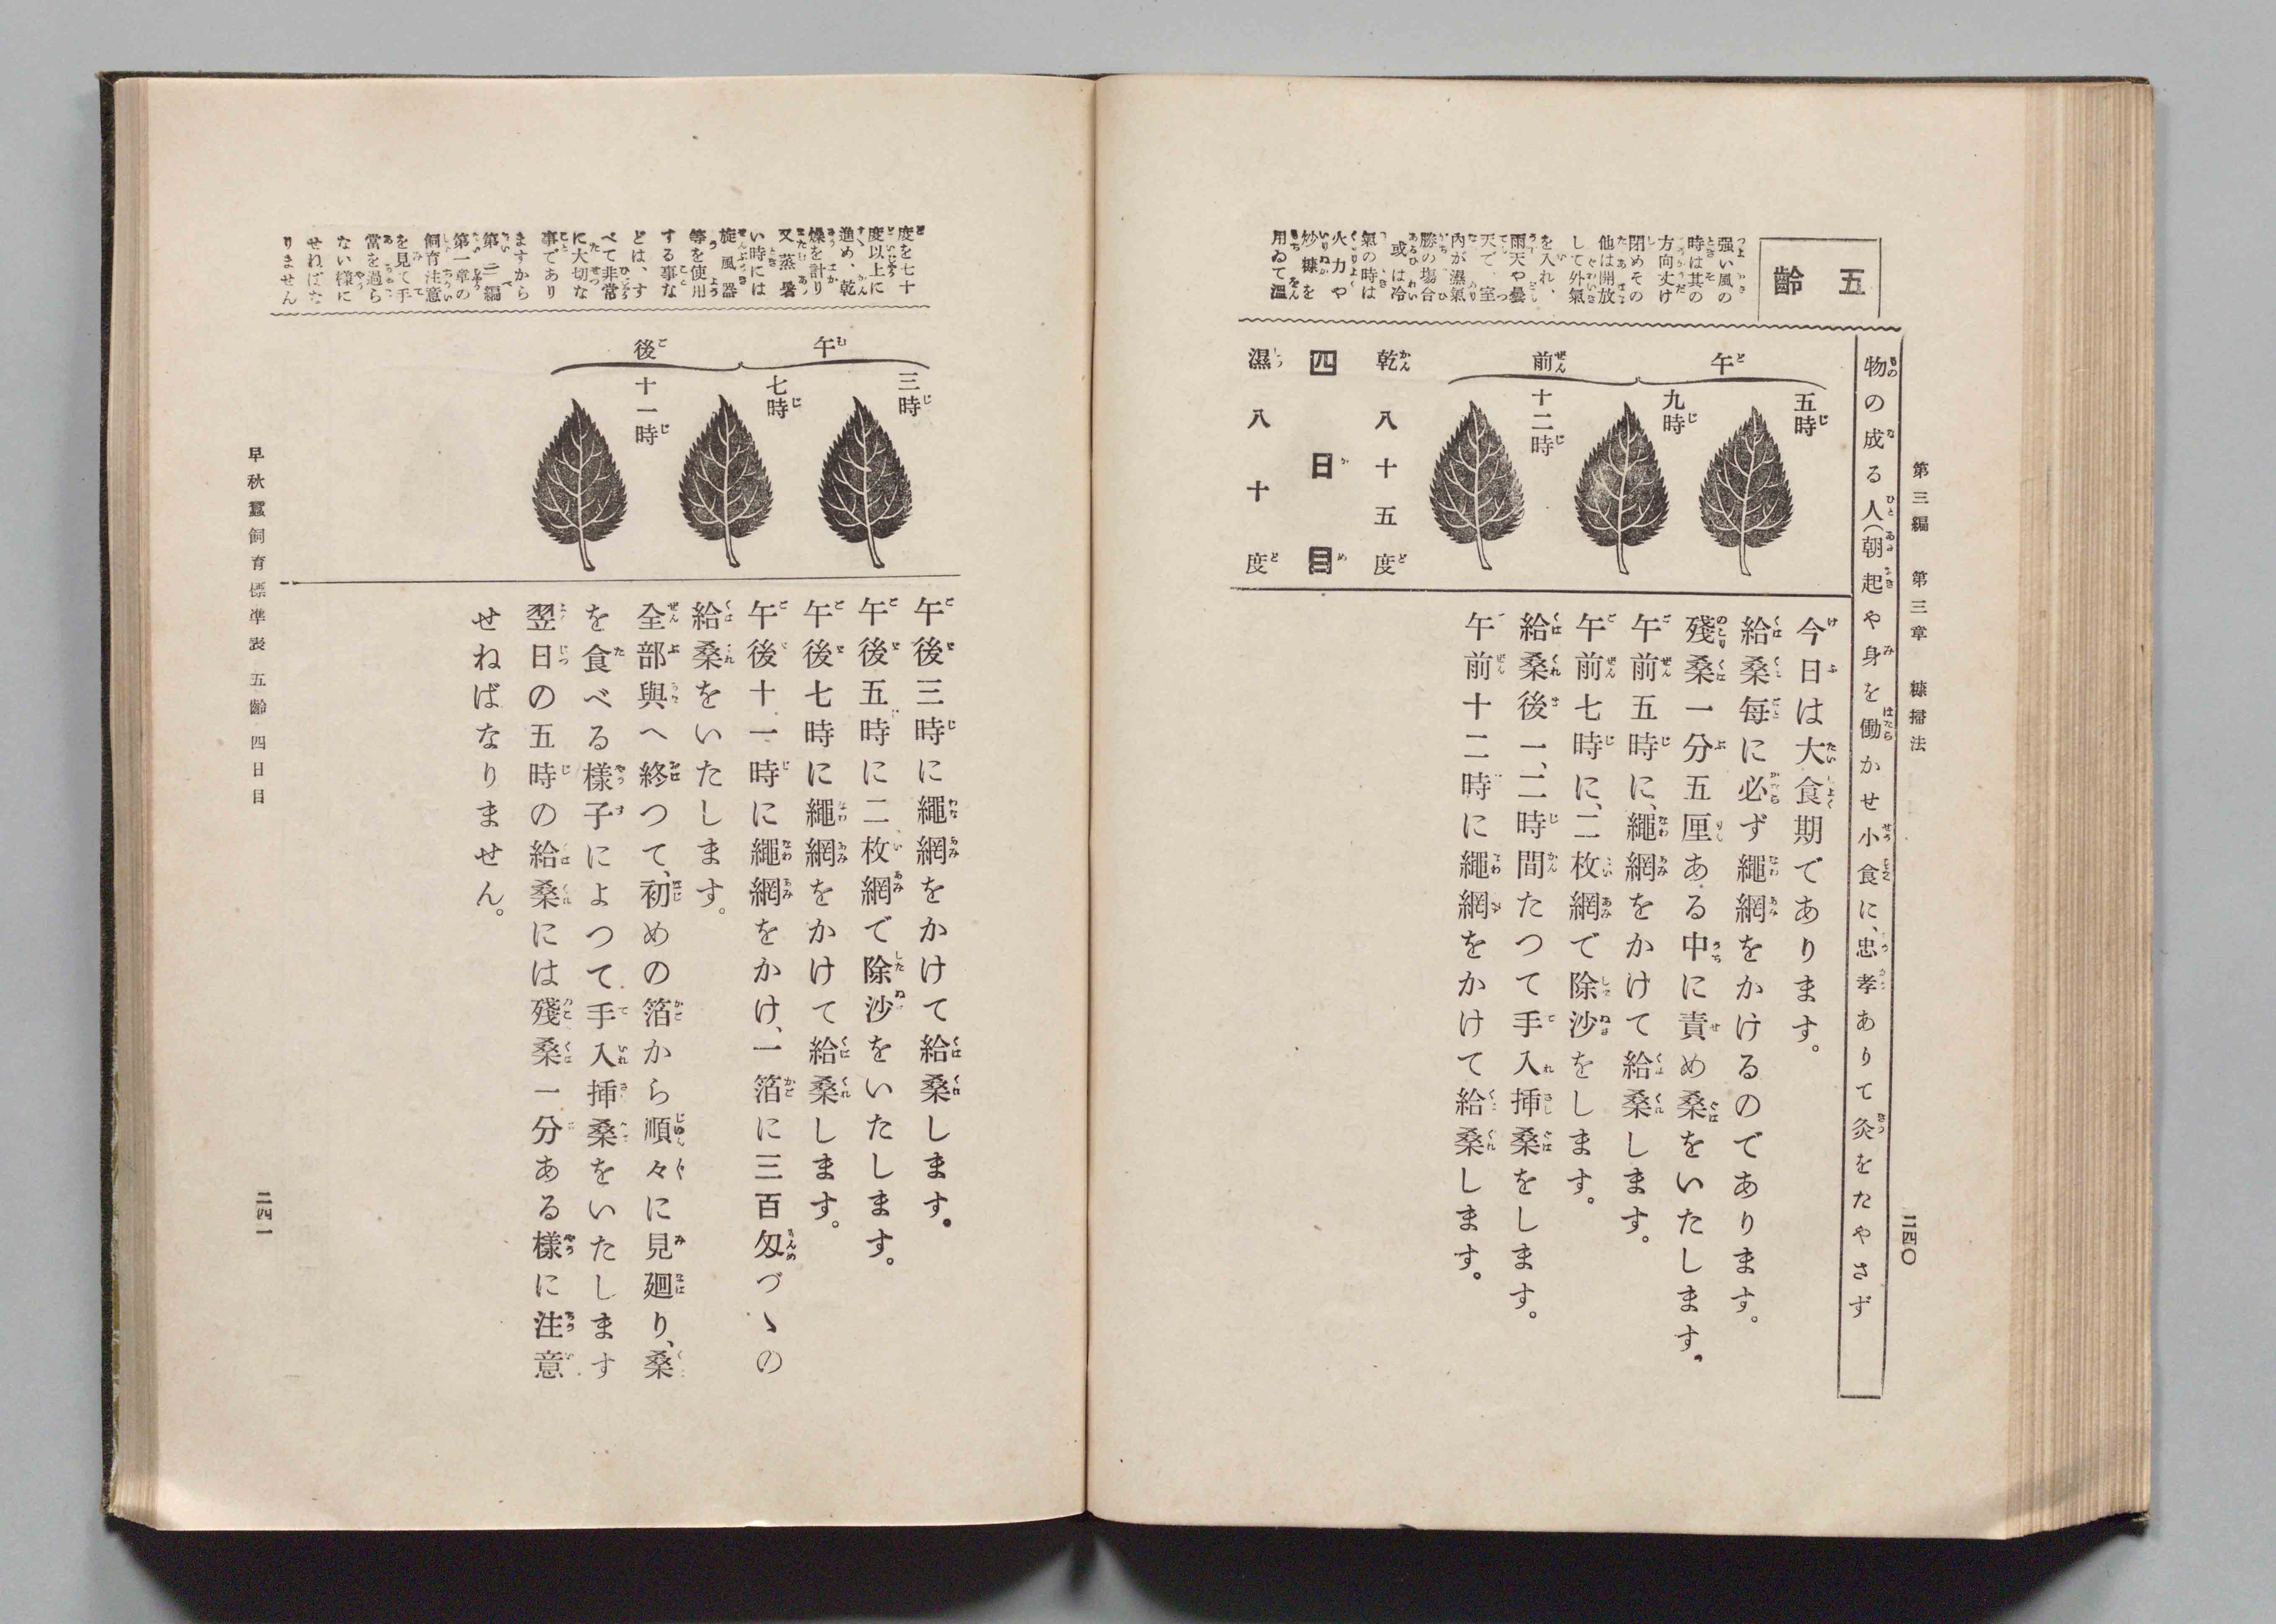 第三編 第三章 糠掃法
二四〇
物の成る人(朝起や身を働かせ小食に、忠孝ありて灸をたやさず
五齡
强い風の
時は其の
方向丈け
閉めその
他は開放
して外氣
を入れ、
雨天や曇
天で、室
內が濕氣
勝の塲合
或は冷
氣の時は
火力や
炒糠を
用ゐて溫
午前
五時
九時
十二時
乾八十五度
四日目
濕八十度
今日は大食期であります。
給桑每に必ず繩網をかけるのであります。
殘桑一分五厘ある中に責め桑をいたします。
午前五時に、繩網をかけて給桑します。
午前七時に、二枚網で除沙をします。
給桑後一、二時間たつて手入挿桑をします。
午前十二時に繩網をかけて給桑します。
度を七十
度以上に
進め、乾
燥を計り
又蒸暑
い時には
旋風器
等を使用
する事な
どは、す
べて非常
に大切な
事であり
ますから
第二編
第一章の
飼育注意
を見て手
當を過ら
ない樣に
せねばな
りません
午後
三時
七時
十一時
午後三時に繩網をかけて給桑します。
午後五時に二枚網で除沙をいたします。
午後七時に繩網をかけて給桑します。
午後十一時に繩網をかけ、一箔に三百匁づゝの
給桑をいたします。
全部與へ終つて、初めの箔から順々に見廻り、桑
を食べる樣子によつて手入挿桑をいたします
翌日の五時の給桑には殘桑一分ある樣に注意
せねばなりません。
早秋蠶飼育標準表 五齡 四日目
二四一